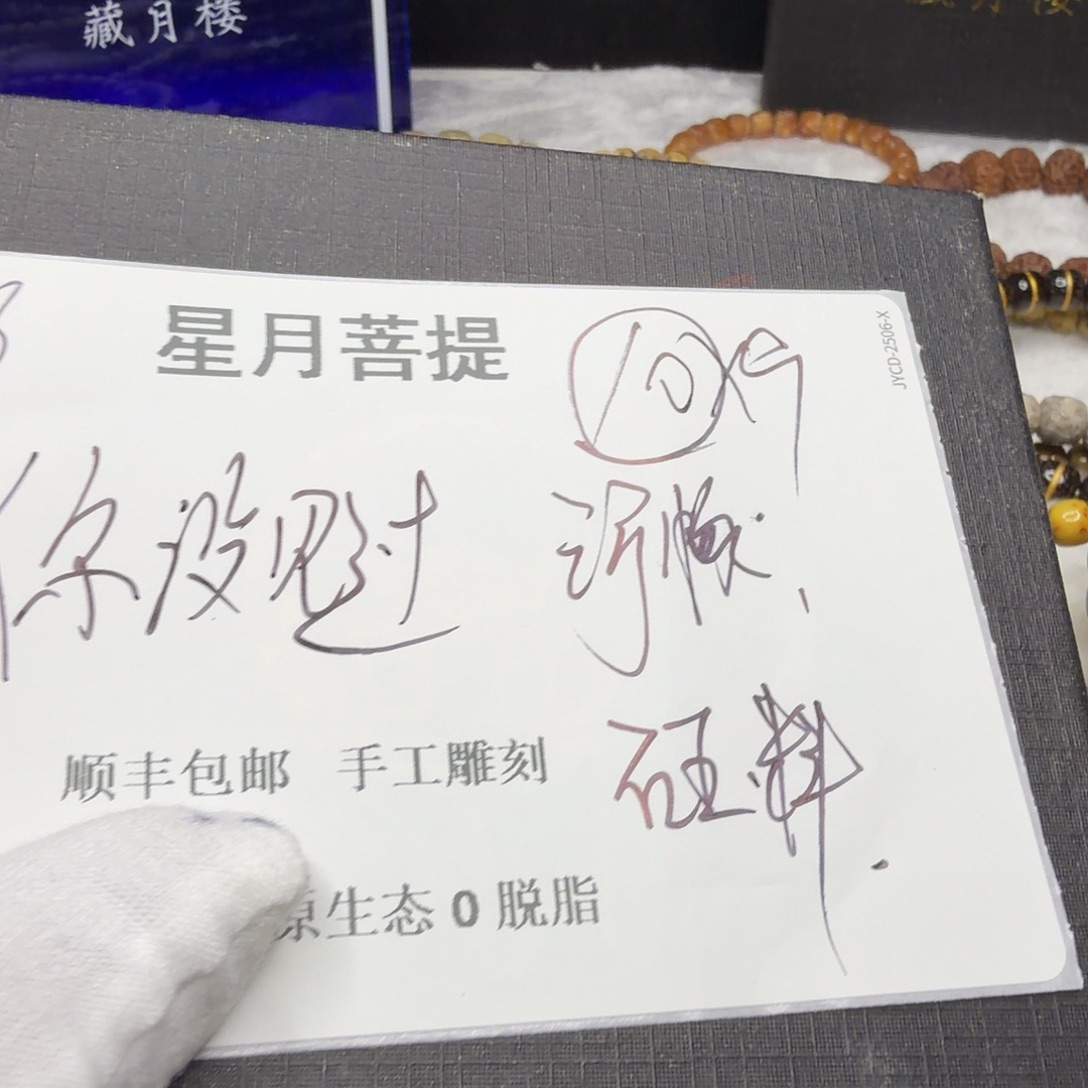 藏月楼
星月菩提
⑩
JYCD-2506-X
你没见过
顺丰包邮 手工雕刻
料
原生态0脱脂